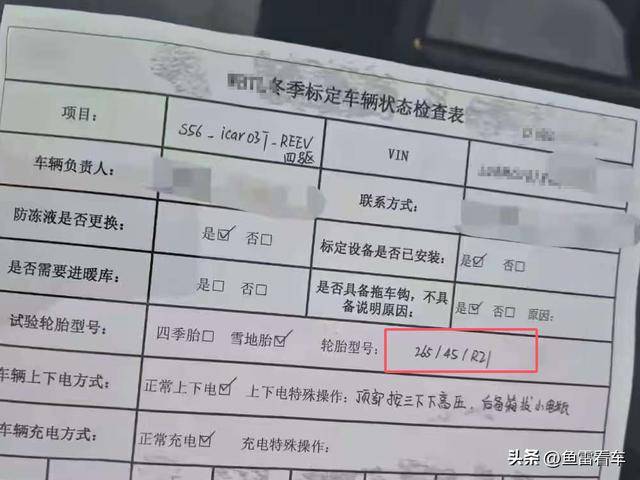 冬季标定车辆状态检查表
项目: S56_icar03T_REEV VIN
四驱
车辆负责人: 联系方式:
防冻液是否更换: 是☑ 否□ 标定设备是否已安装: 是☑ 否□
是否需要进暖库: 是□ 否□ 是否具备拖车钩,不具 是☑ 否□ 原因:
备说明原因:
试验轮胎型号: 四季胎□ 雪地胎☑ 轮胎型号: 265/45/R21
车辆上下电方式: 正常上下电☑ 上下电特殊操作: 顶部按三下下高压,后备箱拔小电瓶
车辆充电方式: 正常充电☑ 充电特殊操作:
头条 @鱼雷看车